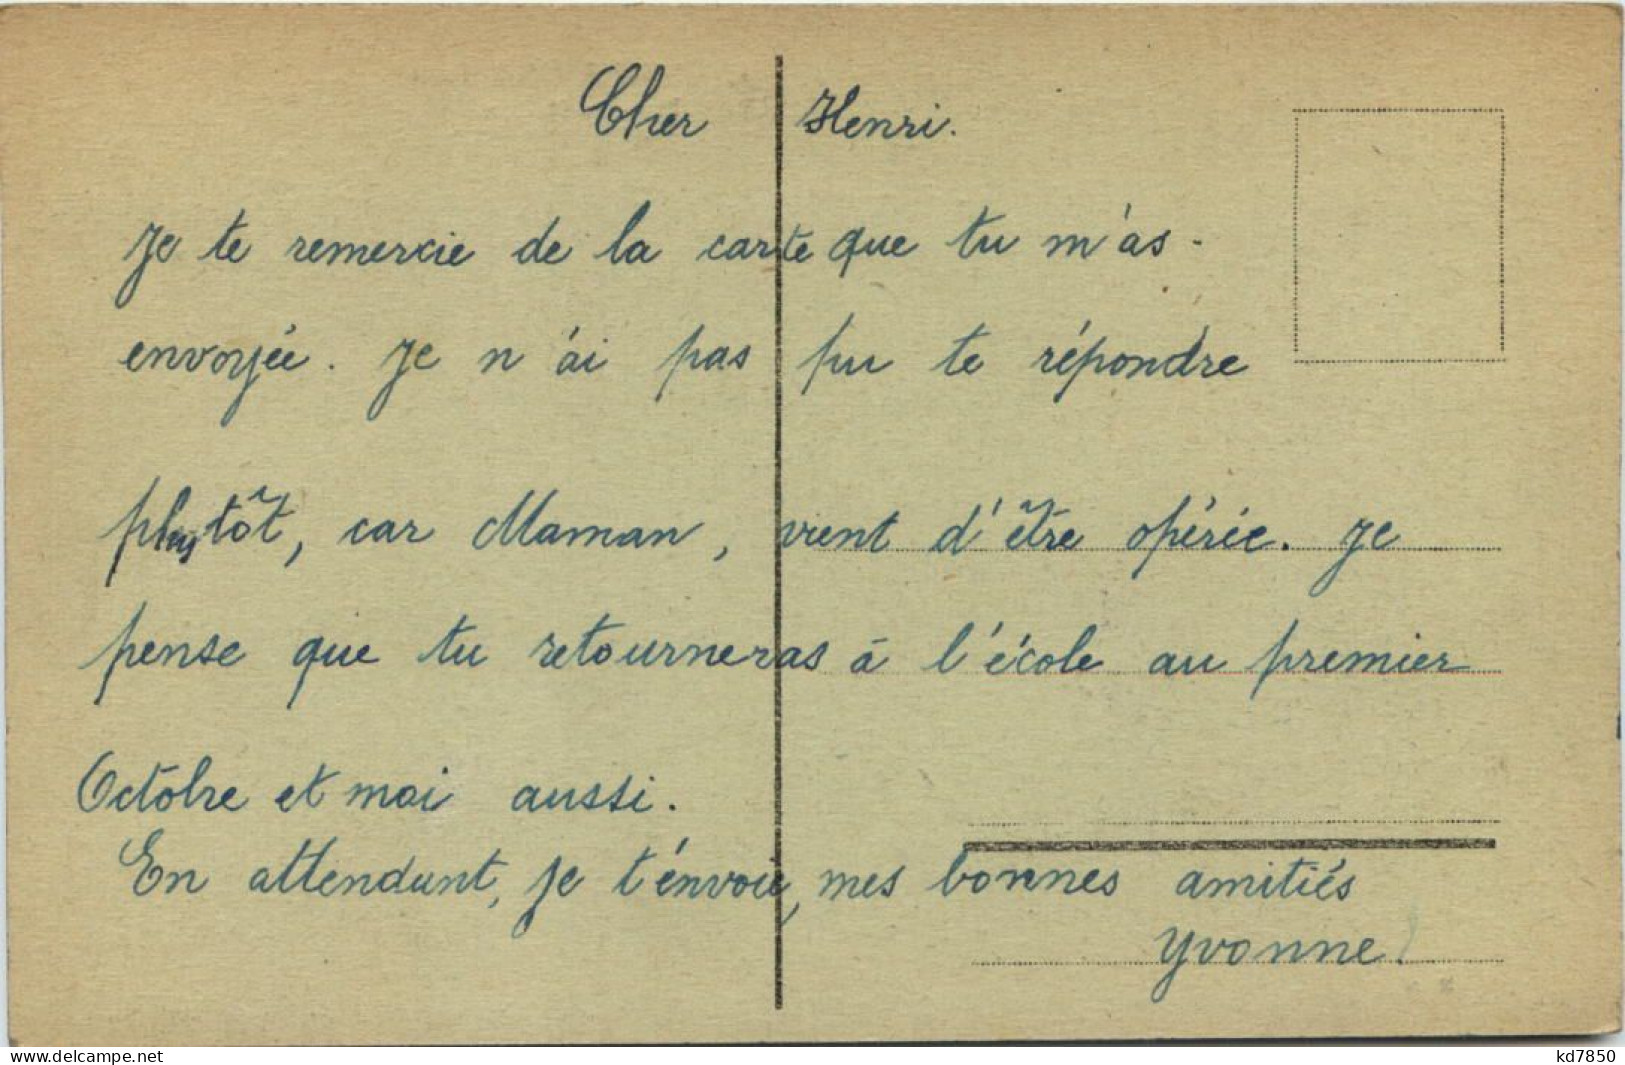 Cher Henri.
Je te remercie de la carte que tu m'as.
envoyée. Je n'ai pas pu te répondre
plutôt, car Maman, vient d'être opérée. Je
pense que tu retourneras à l'école au premier
Octobre et moi aussi.
En attendant, je t'envoie, mes bonnes amitiés
Yvonne.
www.delcampe.net
kd7850